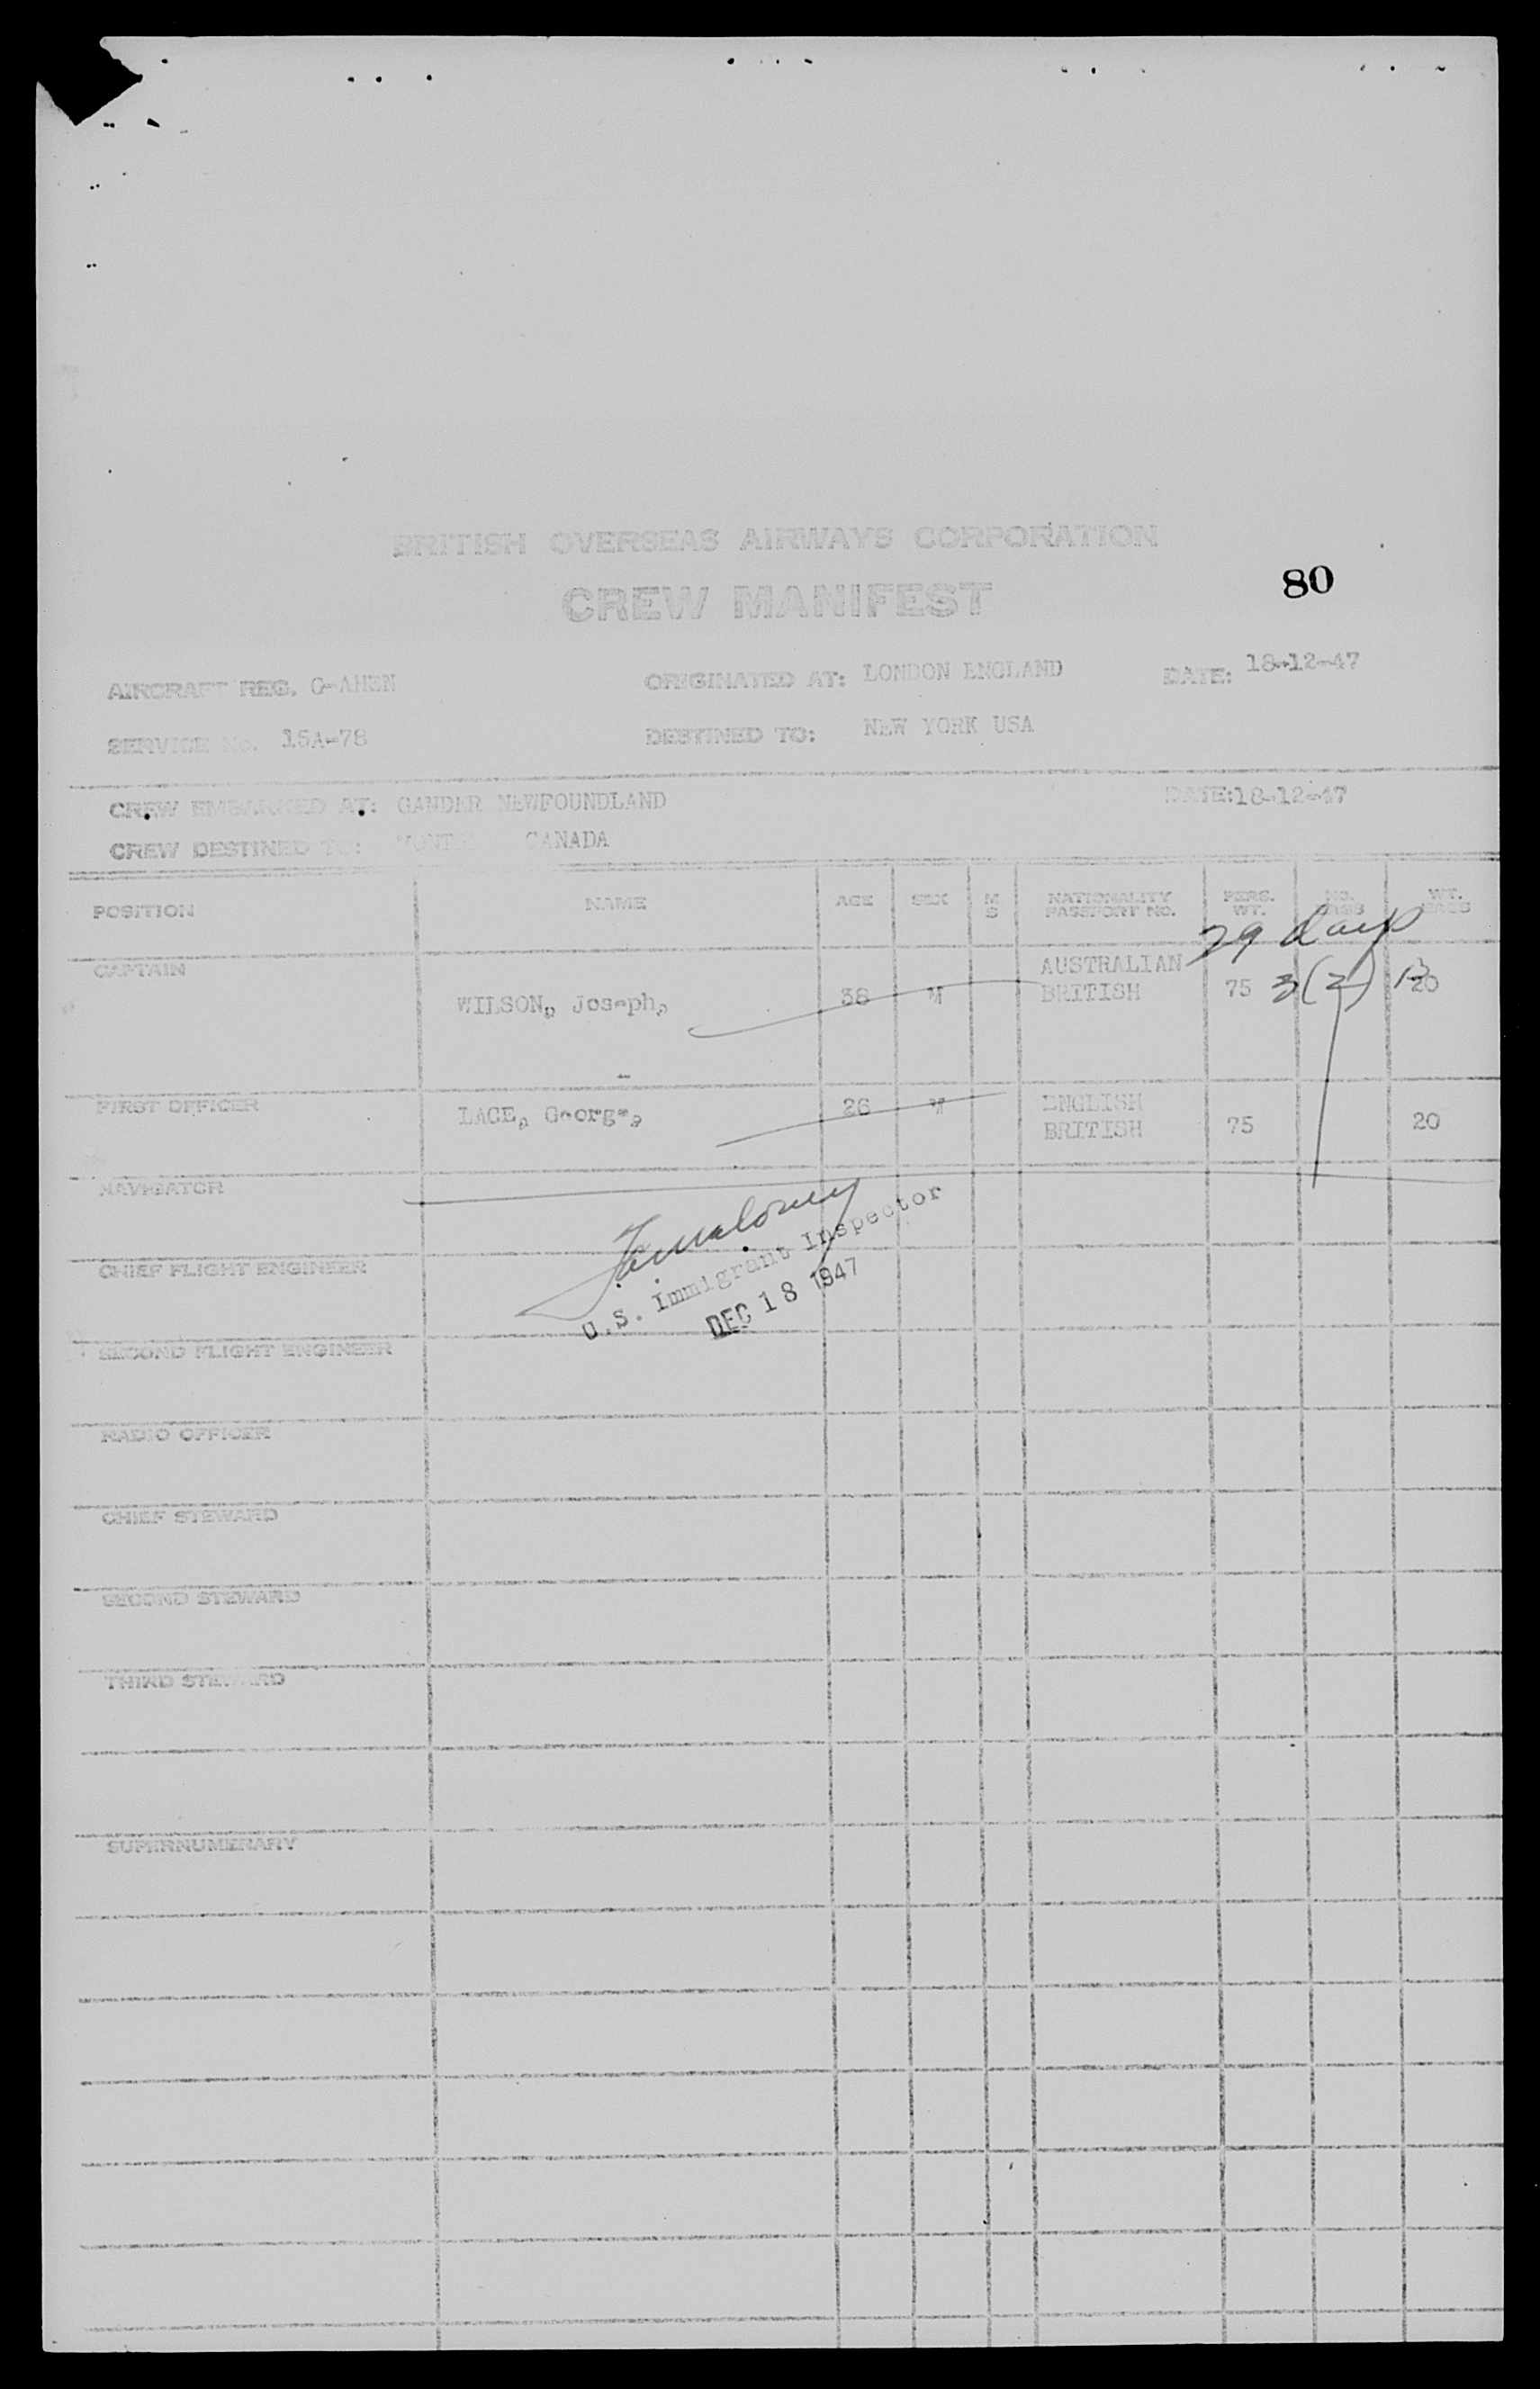 BRITISH OVERSEAS AIRWAYS CORPORATION
CREW MANIFEST
80
AIRCRAFT REG. G-AHEN ORIGINATED AT: LONDON ENGLAND DATE: 18-12-47
SERVICE No. 15A-78 DESTINED TO: NEW YORK USA
CREW EMBARKED AT: GANDER NEWFOUNDLAND DATE: 18-12-47
CREW DESTINED TO: CANADA
POSITION NAME AGE SEX M S NATIONALITY PASSPORT NO. PERS. WT. NO. BAGS WT. BAGS
29 days
CAPTAIN WILSON, Joseph, 38 M AUSTRALIAN BRITISH 75 3(2) 20
FIRST OFFICER LACE, George, 26 M ENGLISH BRITISH 75 20
NAVIGATOR
U.S. Immigrant Inspector
DEC 18 1947
CHIEF FLIGHT ENGINEER
SECOND FLIGHT ENGINEER
RADIO OFFICER
CHIEF STEWARD
SECOND STEWARD
THIRD STEWARD
SUPERNUMERARY